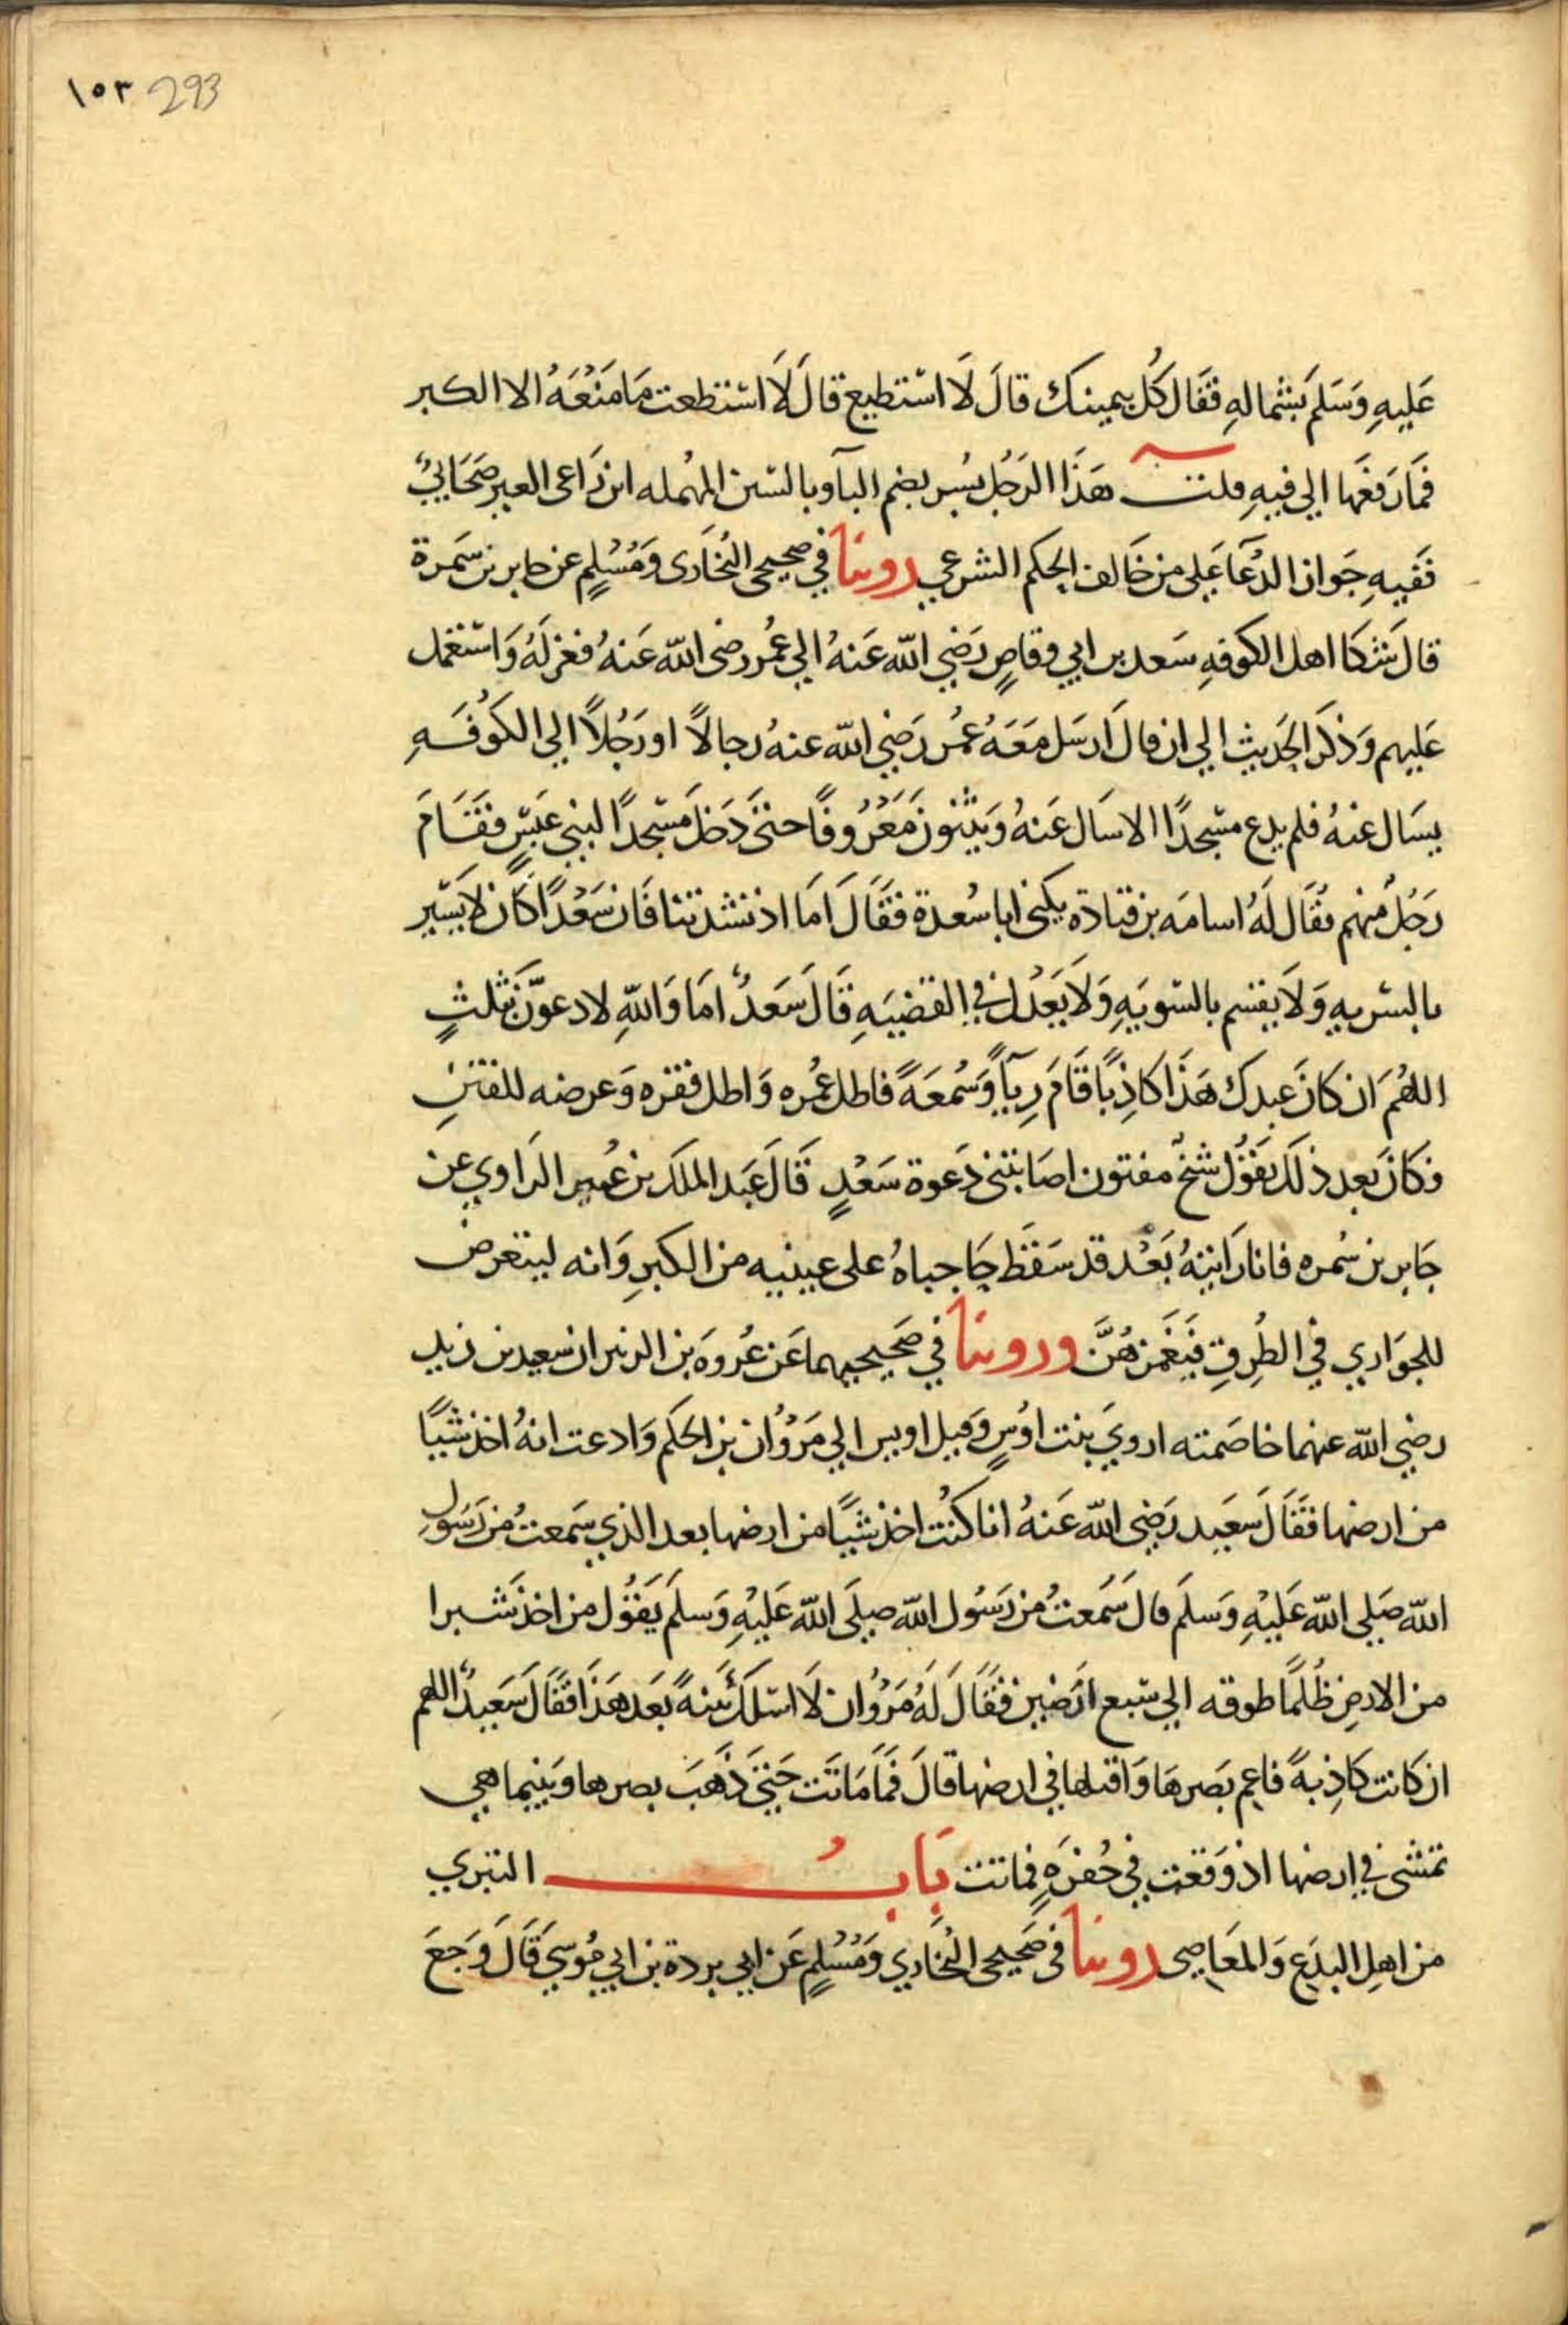 ١٥٣ 293
عَلَيهِ وَسَلَم بَشمالهِ فقَال كُل بيمينك قالَ لَا استطيع قالَ لَا استطعت مَا مَنَعَهُ الا الكبر
فمَا رَفعَها الي فيهِ قلت هَذَا الرَجُل بُسر بضم البآ وبالسّين المهمله ابن رَاعى العير صَحَابيٌ
فَفيهِ جَواز الدُعَآ عَلي من خَالف الحكم الشرعي روينا في صحيحى البُخَارى وَمُسُلمٍ عن جابر بن سَمرة
قال شَكَا اهل الكوفهِ سَعد بن ابي وقاصٍ رَضي الله عَنهُ الي عُمر رضى الله عَنهُ فعزلَهُ وَاستعمل
عَليهم وَذكَر الحَديث الي ان قال اَرسَل مَعَهُ عُمر رَضي الله عنهُ رجالاً او رَجُلاً الي الكوُفَهِ
يسَال عنهُ فلم يدع مسجدًا الا سَال عَنهُ وَيثنون مَعَرُوفًا حتىَ دَخَل مَسجدًا لبنى عَبسٍ فقَامَ
رَجُل منهم يقَال لَهُ اسامَه بن قتادة يكنى ابا سُعدة فقَالَ امَا اذ نشدتنا فان سَعْدًا كَان لا يَسير
بالسريهِ وَلَا يقسم بالسّويَهِ وَلَا يَعَدُل في القضيَهِ قَالَ سَعَدٌ امَا وَاللهِ لادعوّن بثلثٍ
اللهُمَ ان كانَ عبدك هَذَا كاذِبًا قَامَ رِيآً وَسُمعَةً فاطل عُمره وَاطل فقره وَعرضه للفتن
فكانَ بَعد ذلك يقوُل شيخٌ مفتون اصَابتنى دَعوة سَعْدٍ قَالَ عَبَد الملَك بن عُمير الرَاوي عن
جَابر بن سُمره فانا رَايتهُ بَعْد قد سَقَط حَاجباهُ على عينيه من الكبرِ وَانه ليتعرض
للجوَاري في الطُرِقِ فيَغَمزهُنَّ وروينا في صَحيحيهما عَن عُروَه بن الزبير ان سعيد بن زيد
رضي الله عنهما خاصَمته اروي بنت اوُسٍ وَقيل اويس الي مَرْوُان بن الحكَم وَادعت انهُ اخذ شيًا
من ارضها فقَالَ سَعَيد رَضى الله عَنهُ انا كنُت اخذ شيًا من ارضها بعد الذي سَمعتُ من رَسُول
الله صَلي الله عَلَيْهِ وَسلَم قال سَمُعتُ من رَسُول الله صلَي الله عَليْهِ وَسلَم يَقوُل من اخذ شَبرا
من الارضِ ظُلمًا طوقه الي سَبع ارَضين فقَالَ لَهُ مَرْوُان لَا اسَلك بَينهً بَعَد هَذَا فقَالَ سَعَيدٌ اللهم
ان كانت كَاذِبةً فاعم بَصرهَا وَاقتلها في ارضها قالَ فمَا مَاتَت حَتيَ ذَهَبَ بصرها وَبَينما هي
تمشى في ارضها اذ وَقعت في حُفرَهٍ فماتت بَابُ التبري
من اهلِ البدَع وَالمَعَاصِى روينا فى صَحيحى البُخَاري وَمُسُلمٍ عَن ابي بردة بن ابي مُوسي قَالَ وَجعَ